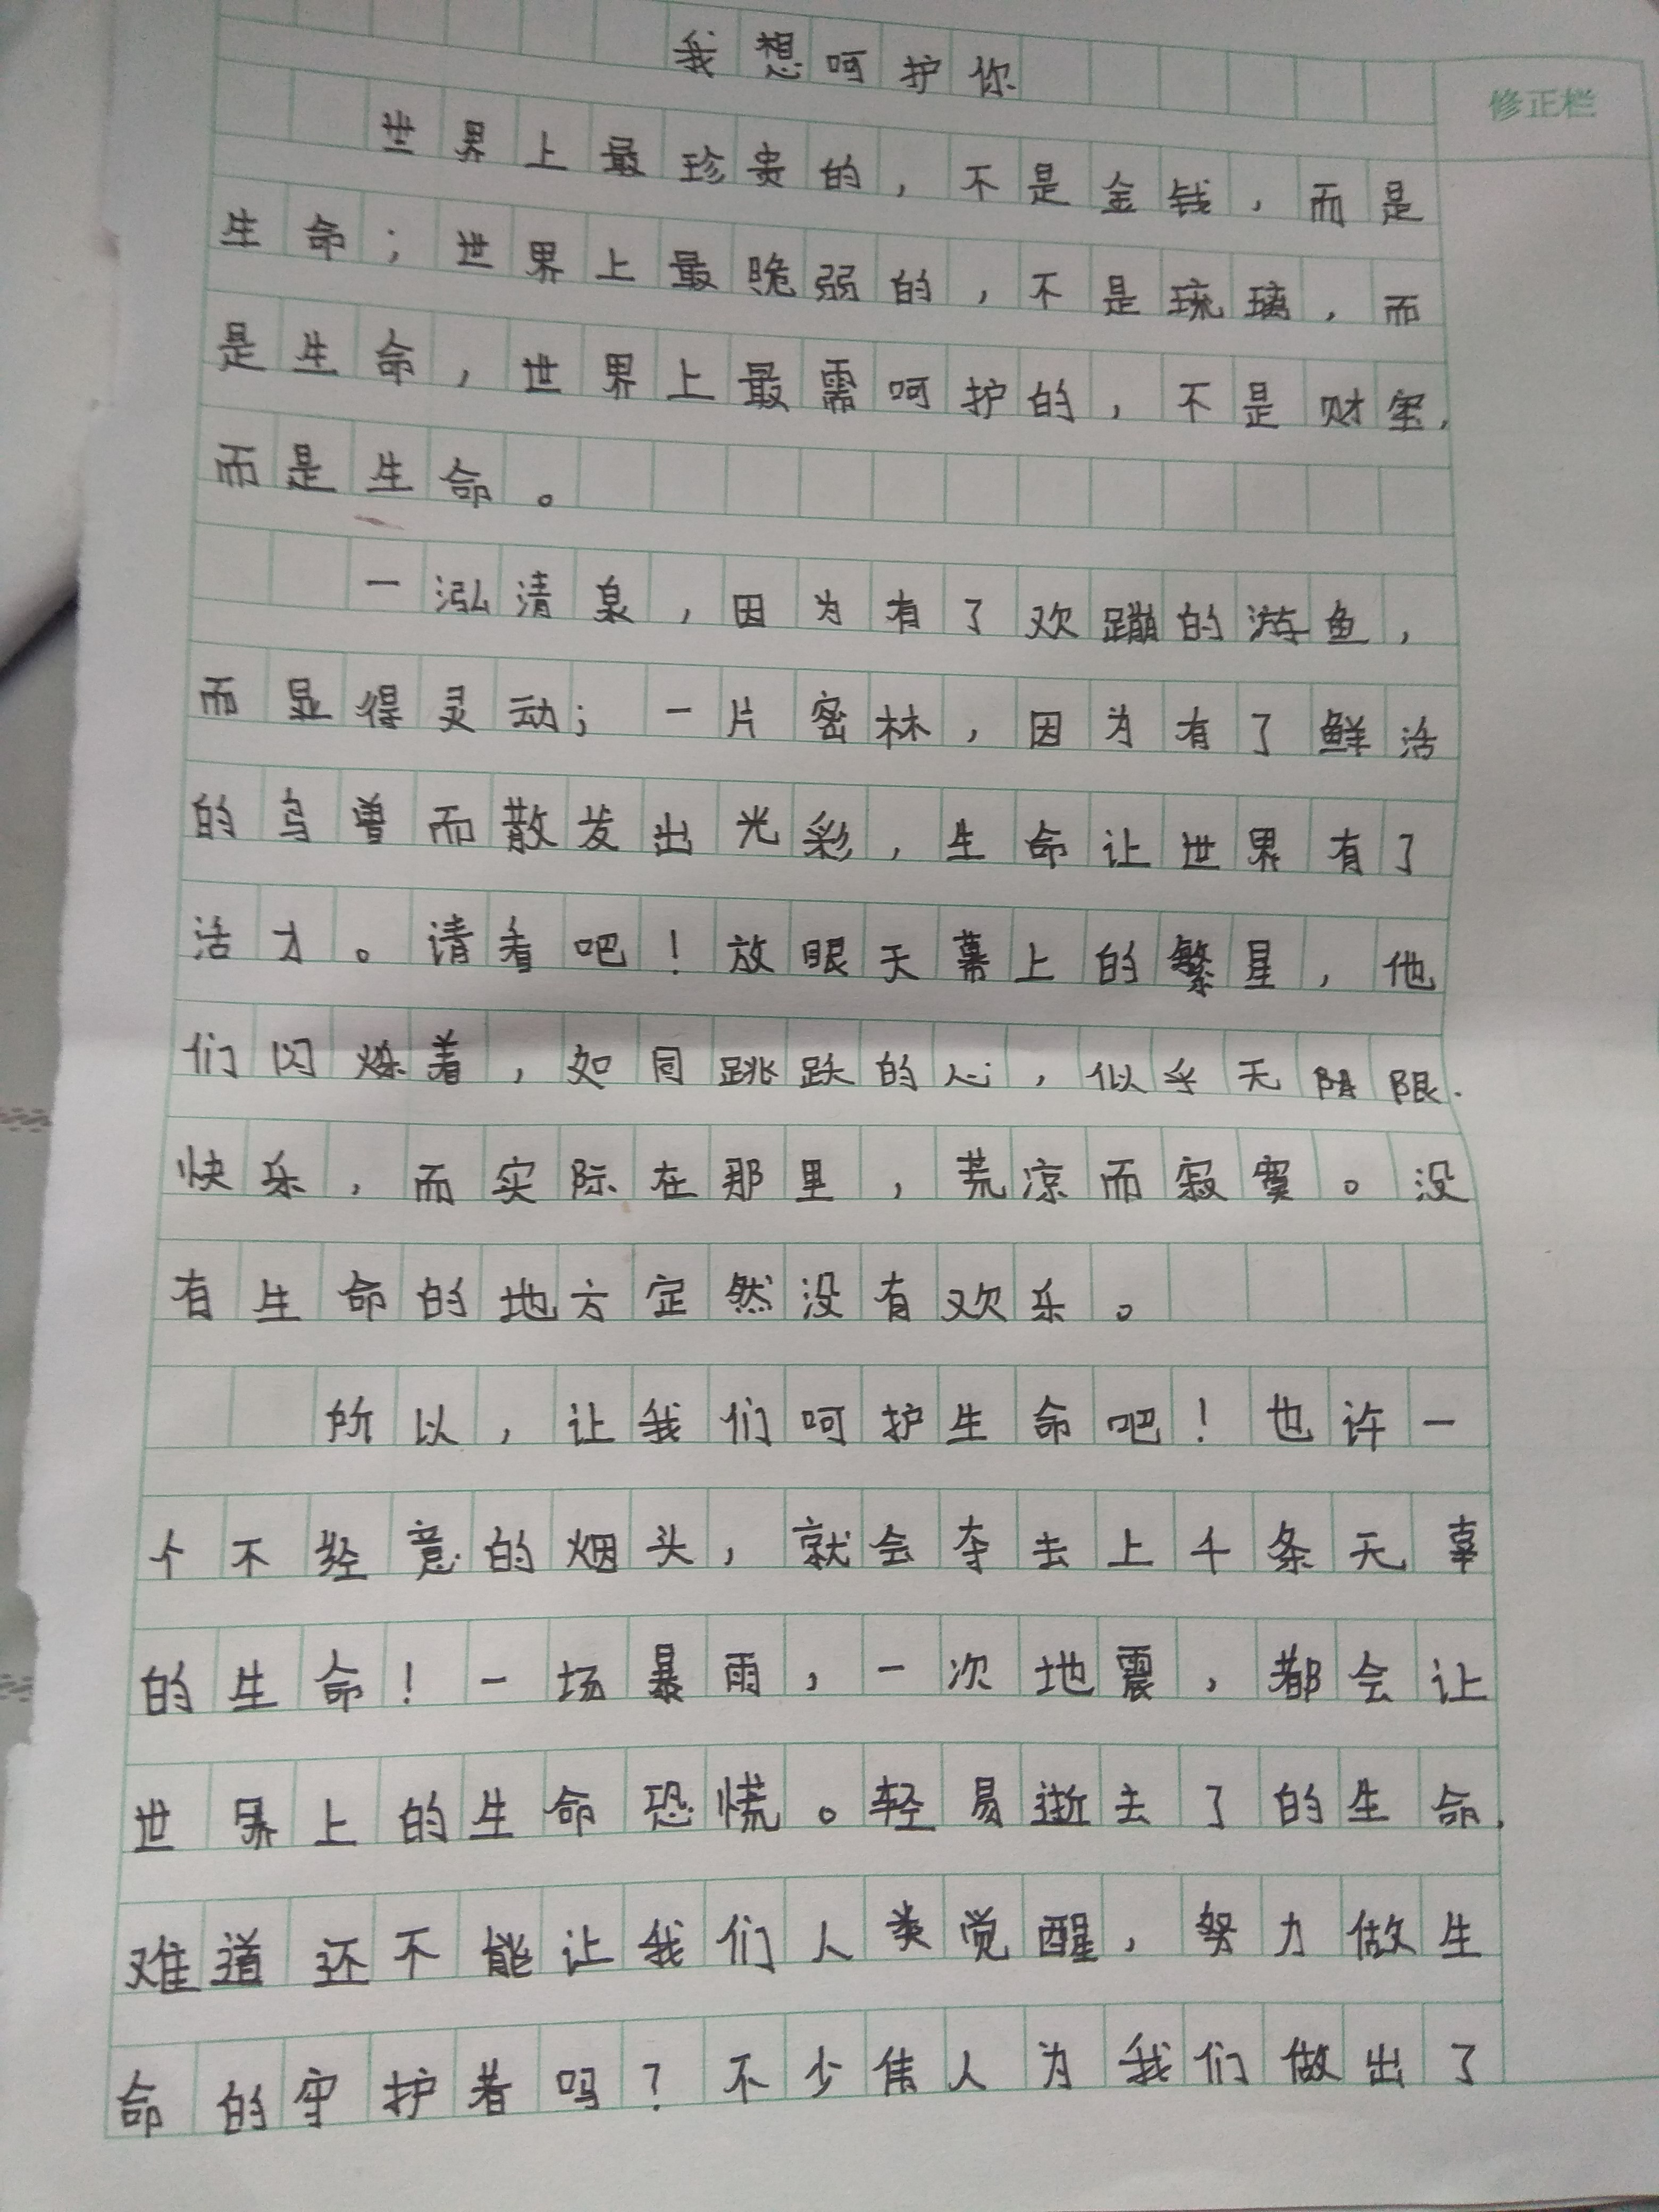 我想呵护你
修正栏
世界上最珍贵的，不是金钱，而是
生命；世界上最脆弱的，不是琉璃，而
是生命，世界上最需呵护的，不是财宝，
而是生命。
一泓清泉，因为有了欢蹦的游鱼，
而显得灵动；一片密林，因为有了鲜活
的鸟兽而散发出光彩，生命让世界有了
活力。请看吧！放眼天幕上的繁星，他
们闪烁着，如同跳跃的心，似乎无限.
快乐，而实际在那里，荒凉而寂寞。没
有生命的地方定然没有欢乐。
所以，让我们呵护生命吧！也许一
个不经意的烟头，就会夺去上千条无辜
的生命！一场暴雨，一次地震，都会让
世界上的生命恐慌。轻易逝去了的生命，
难道还不能让我们人类觉醒，努力做生
命的守护者吗？不少伟人为我们做出了